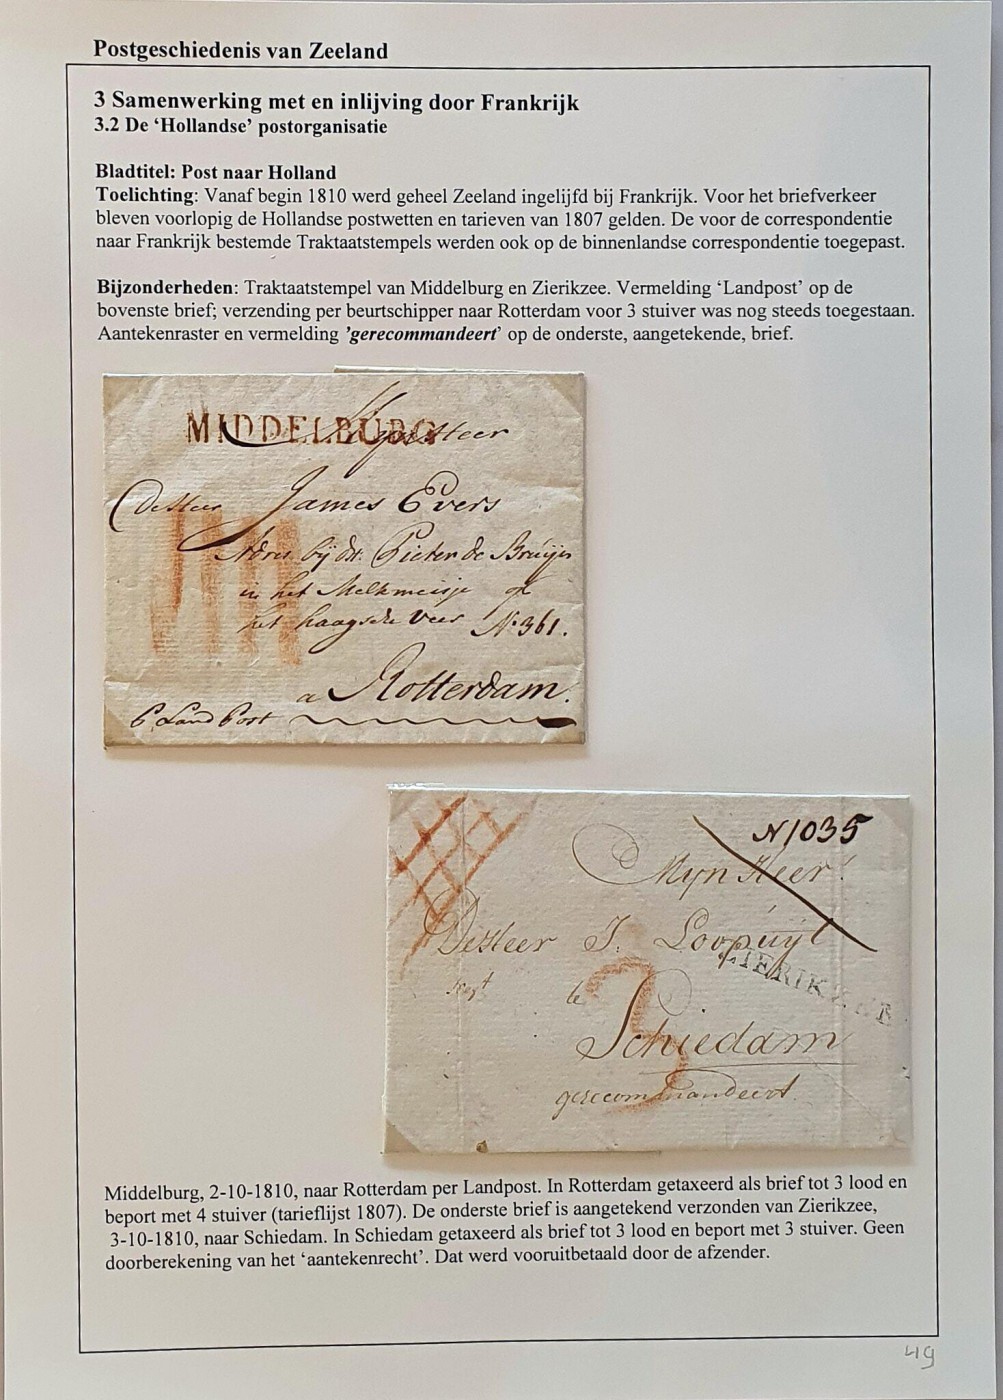 Postgeschiedenis van Zeeland
3 Samenwerking met en inlijving door Frankrijk
3.2 De ‘Hollandse’ postorganisatie
Bladtitel: Post naar Holland
Toelichting: Vanaf begin 1810 werd geheel Zeeland ingelijfd bij Frankrijk. Voor het briefverkeer
bleven voorlopig de Hollandse postwetten en tarieven van 1807 gelden. De voor de correspondentie
naar Frankrijk bestemde Traktaatstempels werden ook op de binnenlandse correspondentie toegepast.
Bijzonderheden: Traktaatstempel van Middelburg en Zierikzee. Vermelding ‘Landpost’ op de
bovenste brief; verzending per beurtschipper naar Rotterdam voor 3 stuiver was nog steeds toegestaan.
Aantekenraster en vermelding ’gerecommandeert’ op de onderste, aangetekende, brief.
MIDDELBURG
De Heer James Evers
Adres bij dr. Pieter de Bruijn
in het Melkmeisje op
het haagsche veer No. 361.
a Rotterdam.
P. Land Post
N 1035
Myn Heer
De Heer J. Loopuyt
ZIERIKZEE
te
3
Schiedam
gerecommandeert.
Middelburg, 2-10-1810, naar Rotterdam per Landpost. In Rotterdam getaxeerd als brief tot 3 lood en
beport met 4 stuiver (tarieflijst 1807). De onderste brief is aangetekend verzonden van Zierikzee,
3-10-1810, naar Schiedam. In Schiedam getaxeerd als brief tot 3 lood en beport met 3 stuiver. Geen
doorberekening van het ‘aantekenrecht’. Dat werd vooruitbetaald door de afzender.
49